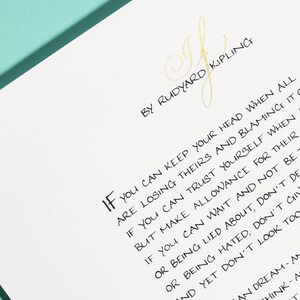 If
BY RUDYARD KIPLING
IF YOU CAN KEEP YOUR HEAD WHEN ALL
ARE LOSING THEIRS AND BLAMING IT O
IF YOU CAN TRUST YOURSELF WHEN
BUT MAKE ALLOWANCE FOR THEIR
IF YOU CAN WAIT AND NOT BE
OR BEING LIED ABOUT, DON'T DE
OR BEING HATED, DON'T GIV
AND YET DON'T LOOK TOO
AN DREAM-AN
THINK-A